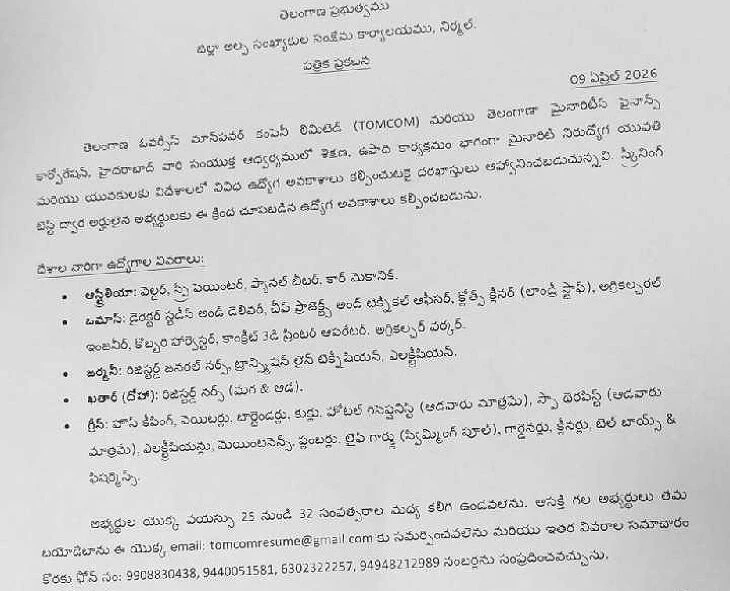 తెలంగాణ ప్రభుత్వము
జిల్లా అల్ప సంఖ్యాకుల సంక్షేమ కార్యాలయము, నిర్మల్.
పత్రిక ప్రకటన
09 ఏప్రిల్ 2026
తెలంగాణ ఓవర్సీస్ మాన్‌పవర్ కంపెనీ లిమిటెడ్ (TOMCOM) మరియు తెలంగాణా మైనారిటీస్ ఫైనాన్స్
కార్పోరేషన్, హైదరాబాద్ వారి సంయుక్త ఆధ్వర్యములో శిక్షణ, ఉపాధి కార్యక్రమం భాగంగా మైనారిటి నిరుద్యోగ యువతి
మరియు యువకులకు విదేశాలలో వివిధ ఉద్యోగ అవకాశాలు కల్పించుటకై దరఖాస్తులు ఆహ్వానించబడుచున్నవి. స్క్రీనింగ్
టెస్ట్ ద్వార అర్హులైన అభ్యర్థులకు ఈ క్రింద చూపబడిన ఉద్యోగ అవకాశాలు కల్పించబడును.
దేశాల వారిగా ఉద్యోగాల వివరాలు:
• ఆస్ట్రేలియా: వెల్డర్, స్ప్రే పెయింటర్, ప్యానల్ బీటర్, కార్ మెకానిక్.
• ఓమాన్: డైరెక్టర్ స్టడీస్ అండ్ డెలివర్, చీఫ్ ప్రాజెక్ట్స్ అండ్ టెక్నికల్ ఆఫీసర్, క్లోత్స్ క్లీనర్ (లాండ్రీ స్టాఫ్), అగ్రికల్చరల్
ఇంజనీర్, కొబ్బరి హార్వెస్టర్, కాంక్రీట్ 3డి ప్రింటర్ ఆపరేటర్, అగ్రికల్చర్ వర్కర్.
• జర్మనీ: రిజిస్టర్డ్ జనరల్ నర్స్, ట్రాన్స్మిషన్ లైన్ టెక్నీషియన్, ఎలక్ట్రీషియన్.
• ఖతార్ (దోహా): రిజిస్టర్డ్ నర్స్ (మగ & ఆడ).
• గ్రీస్: హౌస్ కీపింగ్, వెయిటర్లు, బార్టెండర్లు, కుక్లు, హోటల్ రిసెప్షనిస్ట్ (ఆడవారు మాత్రమే), స్పా థెరపిస్ట్ (ఆడవారు
మాత్రమే), ఎలక్ట్రీషియన్లు, మెయింటనెన్స్, ప్లంబర్లు, లైఫ్ గార్డ్లు (స్విమ్మింగ్ పూల్), గార్డెనర్లు, క్లీనర్లు, బెల్ బాయ్స్ &
ఫిషర్మెన్స్.
అభ్యర్థుల యొక్క వయస్సు 25 నుండి 32 సంవత్సరాల మధ్య కలిగి ఉండవలెను. ఆసక్తి గల అభ్యర్థులు తమ
బయోడేటాను ఈ యొక్క email: tomcomresume@gmail.com కు సమర్పించవలెను మరియు ఇతర వివరాల సమాచారం
కొరకు ఫోన్ నం: 9908830438, 9440051581, 6302322257, 94948212989 నంబర్లను సంప్రదించవచ్చును.